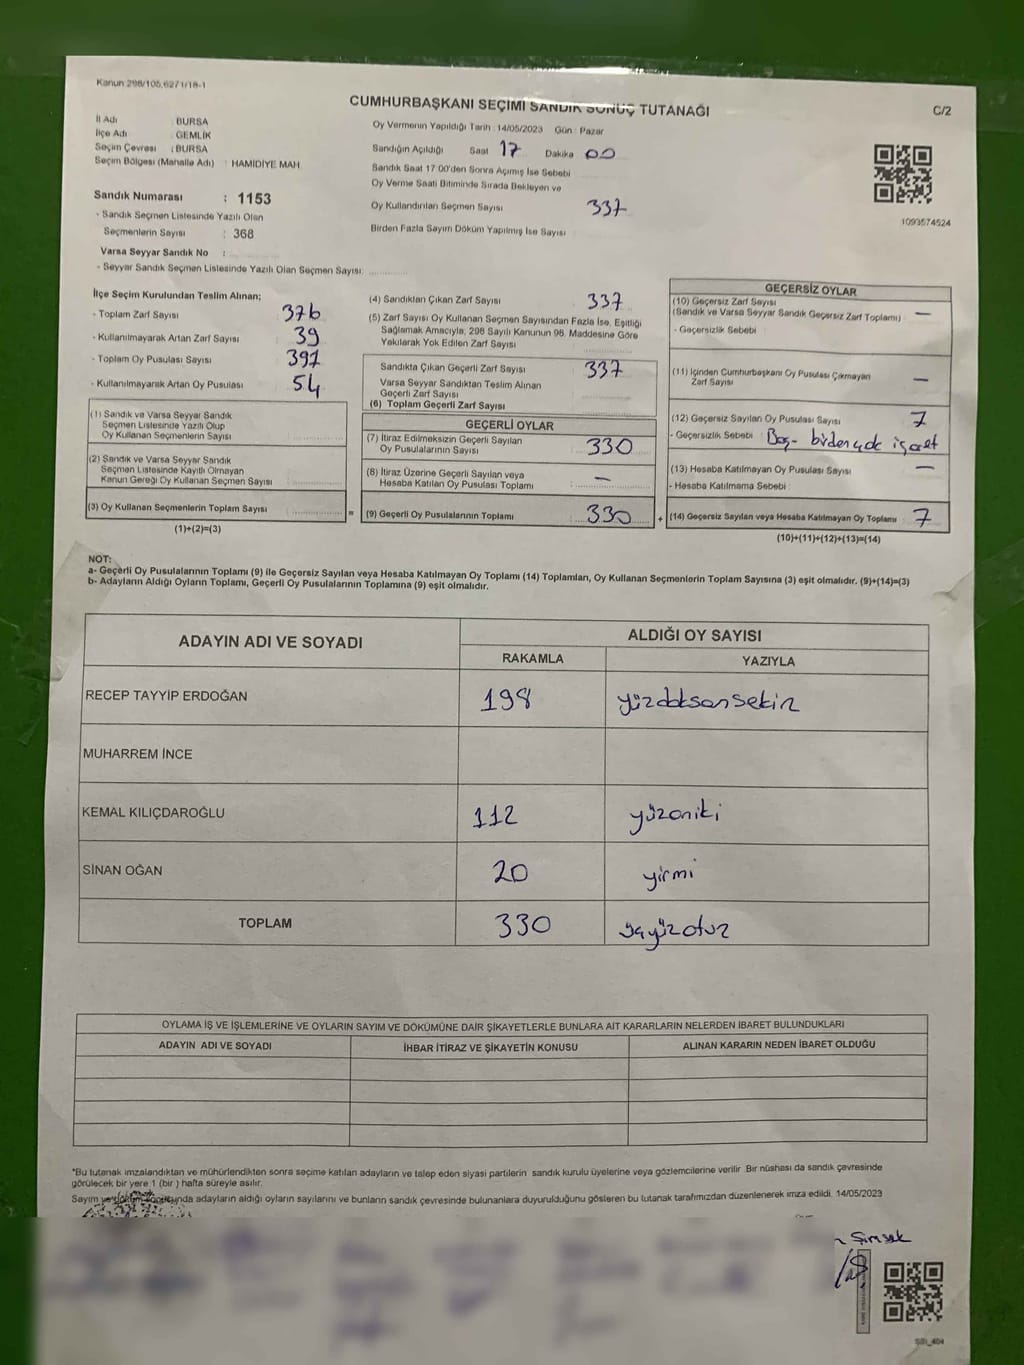 Kanun 298/105,627 1/18-1
CUMHURBAŞKANI SEÇİMİ SANDIK SONUÇ TUTANAĞI
C/2
İl Adı : BURSA
İlçe Adı : GEMLİK
Seçim Çevresi : BURSA
Seçim Bölgesi (Mahalle Adı) : HAMIDIYE MAH
Sandık Numarası : 1153
- Sandık Seçmen Listesinde Yazılı Olan
Seçmenlerin Sayısı : 368
Varsa Seyyar Sandık No :
- Seyyar Sandık Seçmen Listesinde Yazılı Olan Seçmen Sayısı:
Oy Vermenin Yapıldığı Tarih : 14/05/2023 Gün : Pazar
Sandığın Açıldığı Saat 17 Dakika 00
Sandık Saat 17 00'den Sonra Açımış İse Sebebi
Oy Verme Saati Bitiminde Sırada Bekleyen ve
Oy Kullandırılan Seçmen Sayısı 337
Birden Fazla Sayım Döküm Yapılmış İse Sayısı
1093574524
İlçe Seçim Kurulundan Teslim Alınan;
- Toplam Zarf Sayısı 376
- Kullanılmayarak Artan Zarf Sayısı 39
- Toplam Oy Pusulası Sayısı 391
- Kullanılmayarak Artan Oy Pusulası 54
(1) Sandık ve Varsa Seyyar Sandık
Seçmen Listesinde Yazılı Olup
Oy Kullanan Seçmenlerin Sayısı
(2) Sandık ve Varsa Seyyar Sandık
Seçmen Listesinde Kayıtlı Olmayan
Kanun Gereği Oy Kullanan Seçmen Sayısı
(3) Oy Kullanan Seçmenlerin Toplam Sayısı
=
(1)+(2)=(3)
(4) Sandıktan Çıkan Zarf Sayısı 337
(5) Zarf Sayısı Oy Kullanan Seçmen Sayısından Fazla İse, Eşitliği
Sağlamak Amacıyla, 298 Sayılı Kanunun 98. Maddesine Göre
Yakılarak Yok Edilen Zarf Sayısı
Sandıkta Çıkan Geçerli Zarf Sayısı 337
Varsa Seyyar Sandıktan Teslim Alınan
Geçerli Zarf Sayısı
(6) Toplam Geçerli Zarf Sayısı
GEÇERLİ OYLAR
(7) İtiraz Edilmeksizin Geçerli Sayılan
Oy Pusulalarının Sayısı 330
(8) İtiraz Üzerine Geçerli Sayılan veya
Hesaba Katılan Oy Pusulası Toplamı —
(9) Geçerli Oy Pusulalarının Toplamı 330
+
GEÇERSİZ OYLAR
(10) Geçersiz Zarf Sayısı
(Sandık ve Varsa Seyyar Sandık Geçersiz Zarf Toplamı) —
- Geçersizlik Sebebi :
(11) İçinden Cumhurbaşkanı Oy Pusulası Çıkmayan
Zarf Sayısı —
(12) Geçersiz Sayılan Oy Pusulası Sayısı 7
- Geçersizlik Sebebi : Boş - birden çok işaret
(13) Hesaba Katılmayan Oy Pusulası Sayısı —
- Hesaba Katılmama Sebebi :
(14) Geçersiz Sayılan veya Hesaba Katılmayan Oy Toplamı 7
(10)+(11)+(12)+(13)=(14)
NOT:
a- Geçerli Oy Pusulalarının Toplamı (9) ile Geçersiz Sayılan veya Hesaba Katılmayan Oy Toplamı (14) Toplamları, Oy Kullanan Seçmenlerin Toplam Sayısına (3) eşit olmalıdır. (9)+(14)=(3)
b- Adayların Aldığı Oyların Toplamı, Geçerli Oy Pusulalarının Toplamına (9) eşit olmalıdır.
ADAYIN ADI VE SOYADI
ALDIĞI OY SAYISI
RAKAMLA
YAZIYLA
RECEP TAYYİP ERDOĞAN 198 yüzdoksansekiz
MUHARREM İNCE
KEMAL KILIÇDAROĞLU 112 yüzoniki
SİNAN OĞAN 20 yirmi
TOPLAM 330 üçyüzotuz
OYLAMA İŞ VE İŞLEMLERİNE VE OYLARIN SAYIM VE DÖKÜMÜNE DAİR ŞİKAYETLERLE BUNLARA AİT KARARLARIN NELERDEN İBARET BULUNDUKLARI
ADAYIN ADI VE SOYADI
İHBAR İTİRAZ VE ŞİKAYETİN KONUSU
ALINAN KARARIN NEDEN İBARET OLDUĞU
*Bu tutanak imzalandıktan ve mühürlendikten sonra seçime katılan adayların ve talep eden siyasi partilerin sandık kurulu üyelerine veya gözlemcilerine verilir Bir nüshası da sandık çevresinde
görülecek bir yere 1 (bir ) hafta süreyle asılır.
Sayım ve adayların aldığı oyların sayılarını ve bunların sandık çevresinde bulunanlara duyurulduğunu gösteren bu tutanak tarafımızdan düzenlenerek imza edildi. 14/05/2023
Şimşek